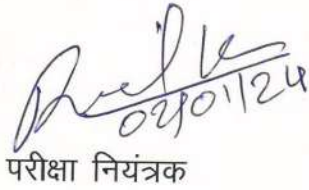 02/01/24
परीक्षा नियंत्रक